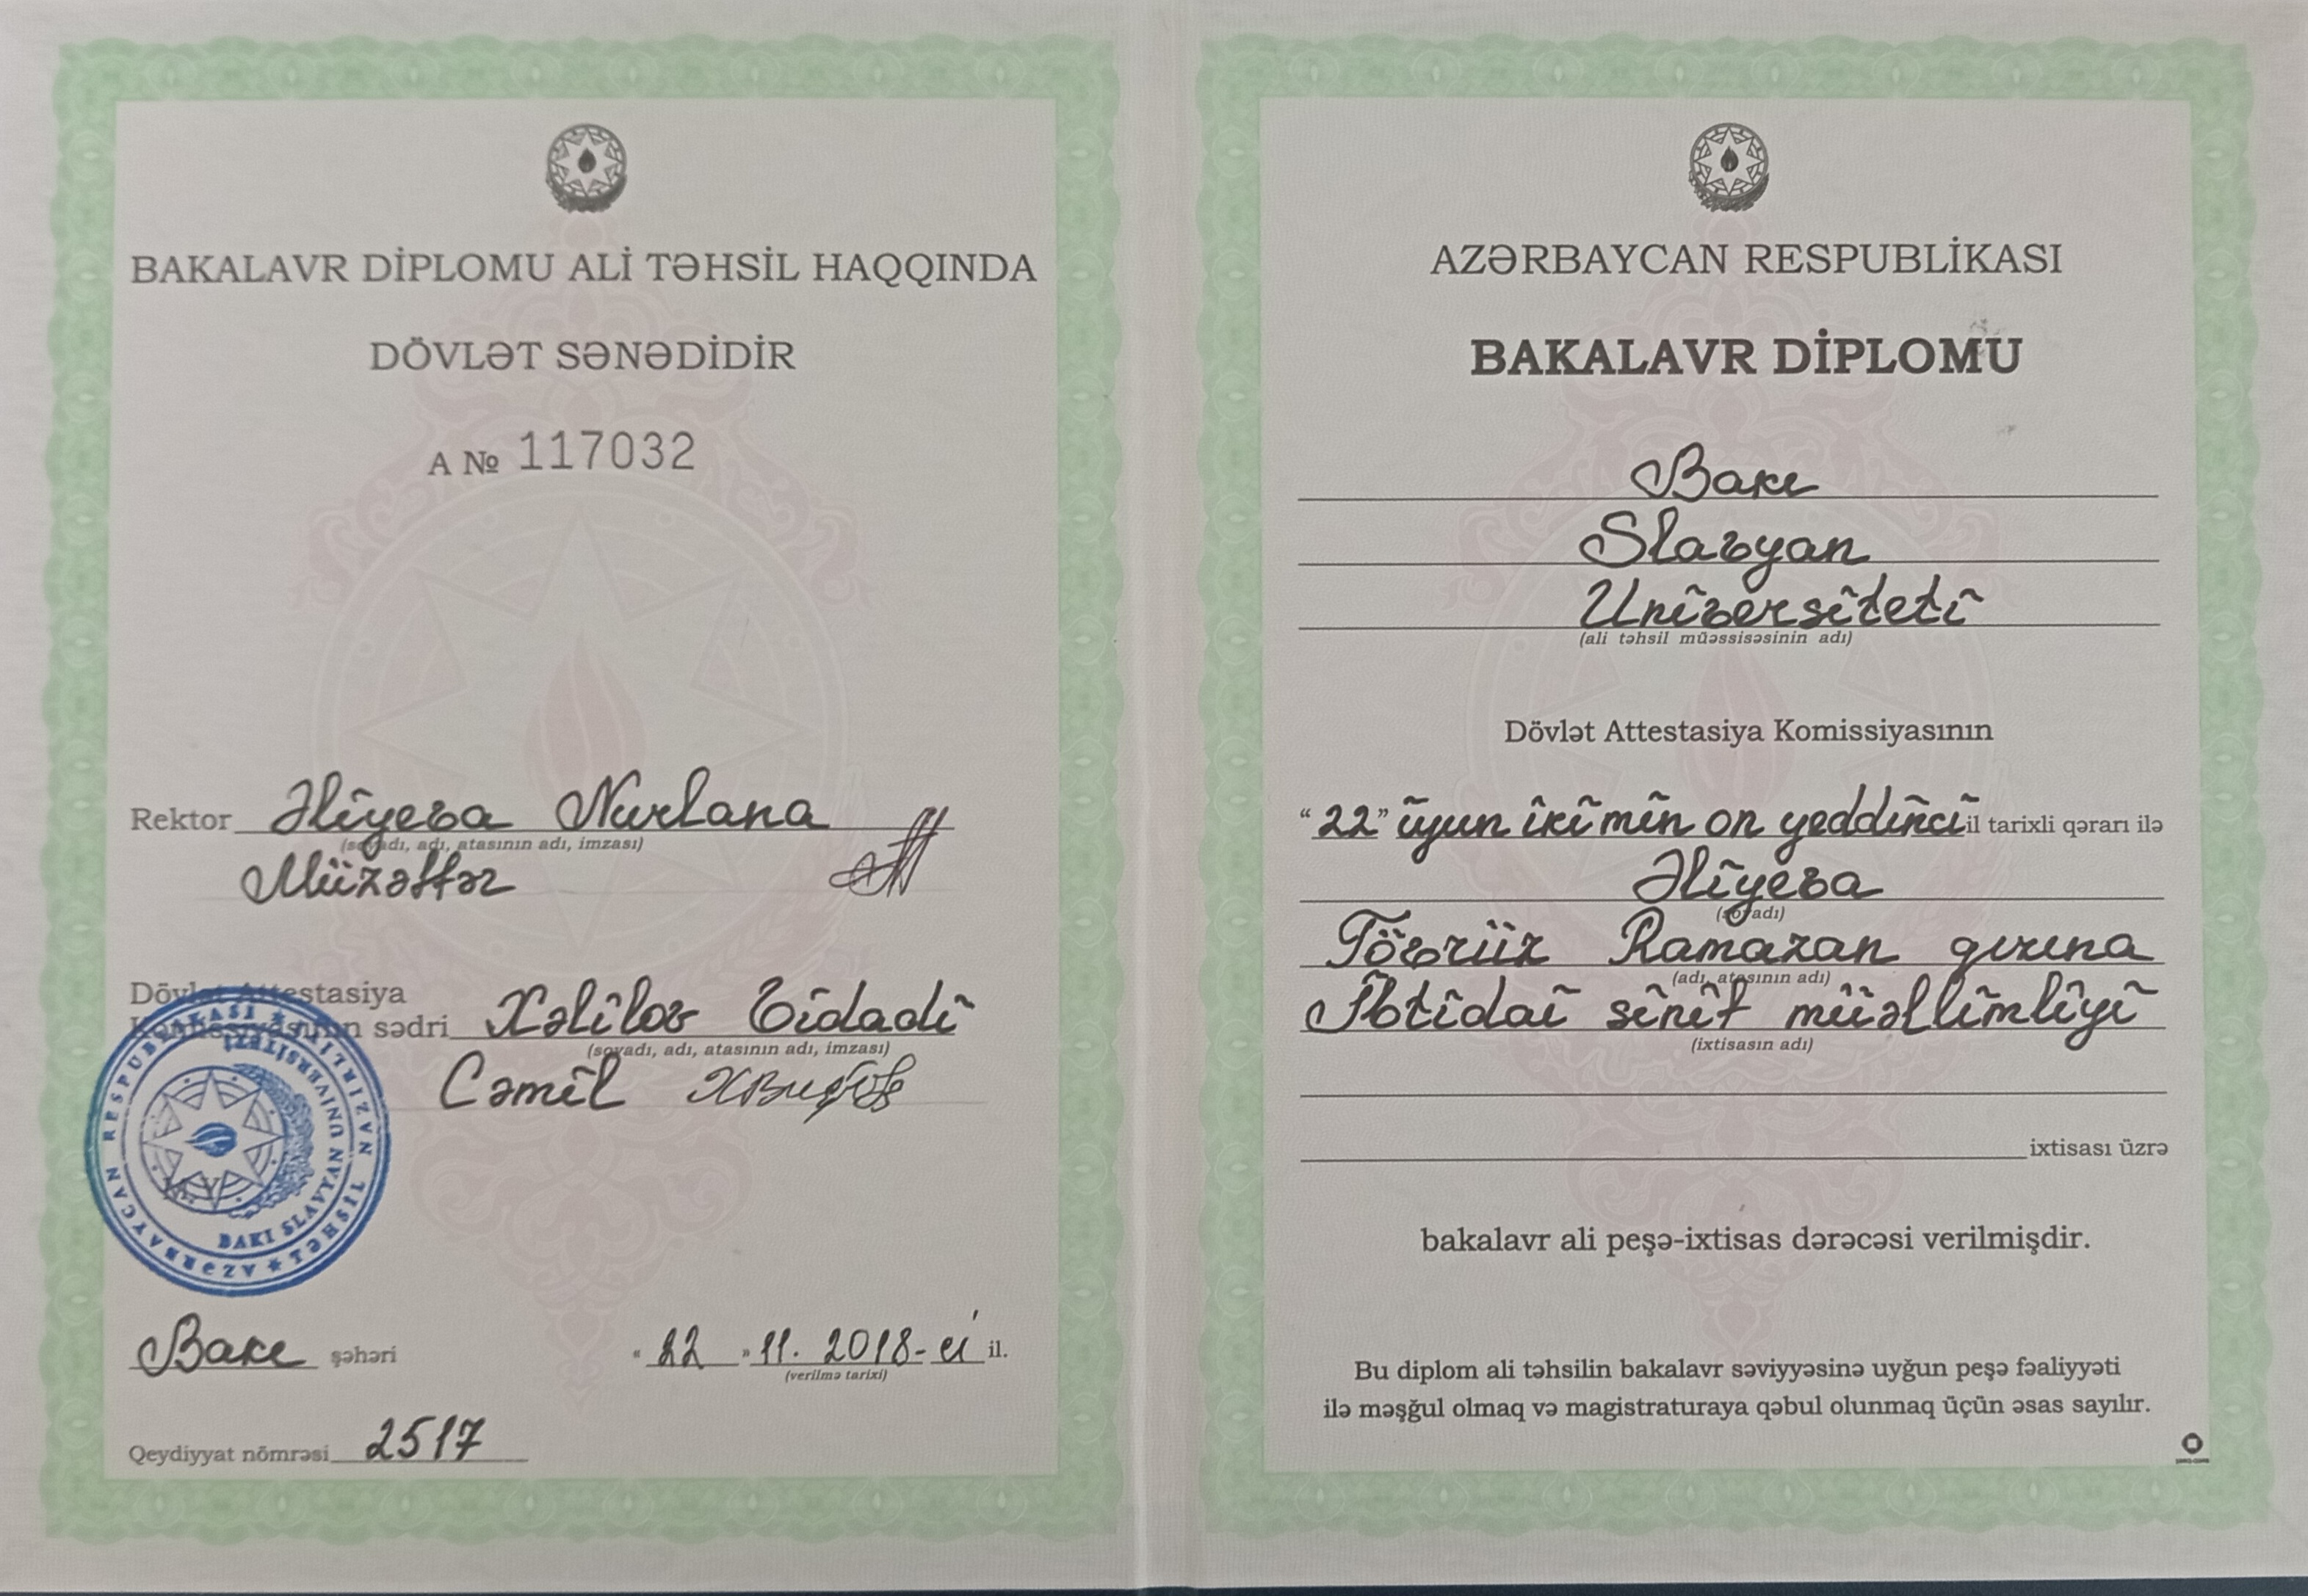 BAKALAVR DİPLOMU ALİ TƏHSİL HAQQINDA
DÖVLƏT SƏNƏDİDİR
A № 117032
Rektor Əliyeva Nurlana
(soyadı, adı, atasının adı, imzası)
Müzəffər
Dövlət Attestasiya
Komissiyasının sədri Xəlilov Vidadi
(soyadı, adı, atasının adı, imzası)
Cəmil
AZƏRBAYCAN RESPUBLİKASI ★ TƏHSİL NAZİRLİYİ ★
BAKI SLAVYAN UNİVERSİTETİ
M.Y.
Bakı şəhəri « 22 » 11. 2018-ci il.
(verilmə tarixi)
Qeydiyyat nömrəsi 2517
AZƏRBAYCAN RESPUBLİKASI
BAKALAVR DİPLOMU
Bakı
Slavyan
Universiteti
(ali təhsil müəssisəsinin adı)
Dövlət Attestasiya Komissiyasının
“22” iyun iki min on yeddinci il tarixli qərarı ilə
Əliyeva
(soyadı)
Tövrüz Ramazan qızına
(adı, atasının adı)
İbtidai sinif müəllimliyi
(ixtisasın adı)
ixtisası üzrə
bakalavr ali peşə-ixtisas dərəcəsi verilmişdir.
Bu diplom ali təhsilin bakalavr səviyyəsinə uyğun peşə fəaliyyəti
ilə məşğul olmaq və magistraturaya qəbul olunmaq üçün əsas sayılır.